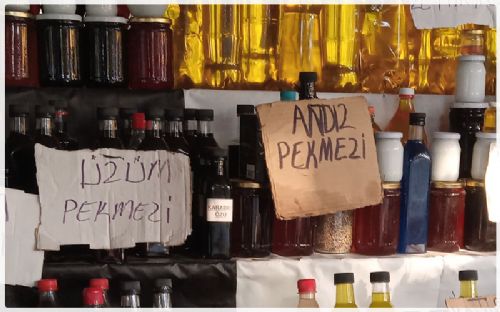 ANDIZ
PEKMEZİ
ÜZÜM
PEKMEZİ
ÖZÜ